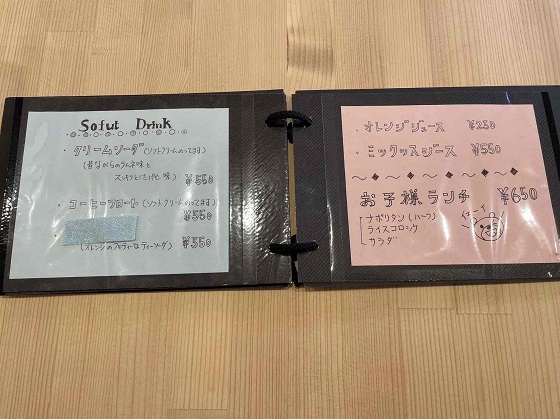 Sofut Drink
・クリームソーダ(ソフトクリームのってます)
(昔ながらのラムネ味と
スッキリとした後味) ¥550
・コーヒーフロート(ソフトクリームのってます)
¥550
(オレンジのフルティーなティーソーダ) ¥550
・オレンジジュース ¥250
・ミックスジュース ¥550
お子様ランチ ¥650
ナポリタン(ハーフ)
ライスコロッケ
サラダ